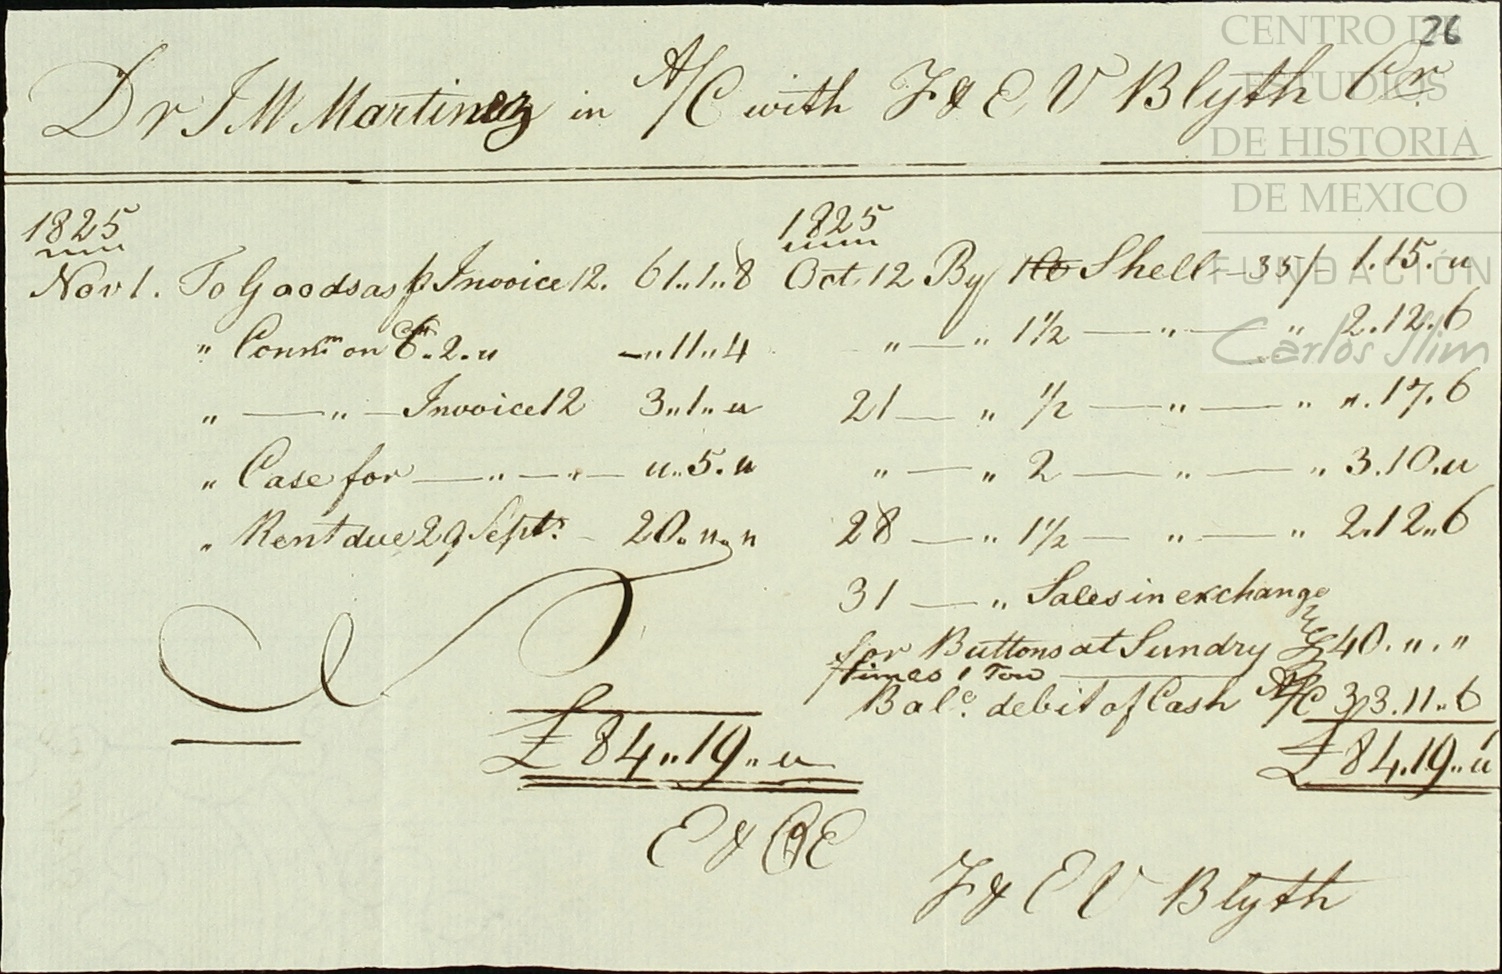 26
CENTRO DE
ESTUDIOS
DE HISTORIA
DE MEXICO
FUNDACIÓN
Carlos Slim
Dr J M Martinez in A/C with F & E V Blyth Cr
1825
Nov 1. To Goods as p Invoice 12. 61..1..8
" Commn on £6..2.." -..11..4
" — " — Invoice 12 3..1.."
" Case for — " — " — "..5.."
" Rent due 29 Septr. 20.".."
£84..19.."
E & OE
1825
Oct 12 By 1 Shell — 35/- 1.15."
" — " 1½ — " — " 2.12.6
21 — " ½ — " — " ".17.6
" — " 2 — " — " 3.10."
28 — " 1½ — " — " 2.12..6
31 — " Sales in exchange
for Buttons at Sundry £40.".."
times 1 Ton
Balce. debit of Cash A/C 33.11..6
£84.19.."
F & E V Blyth